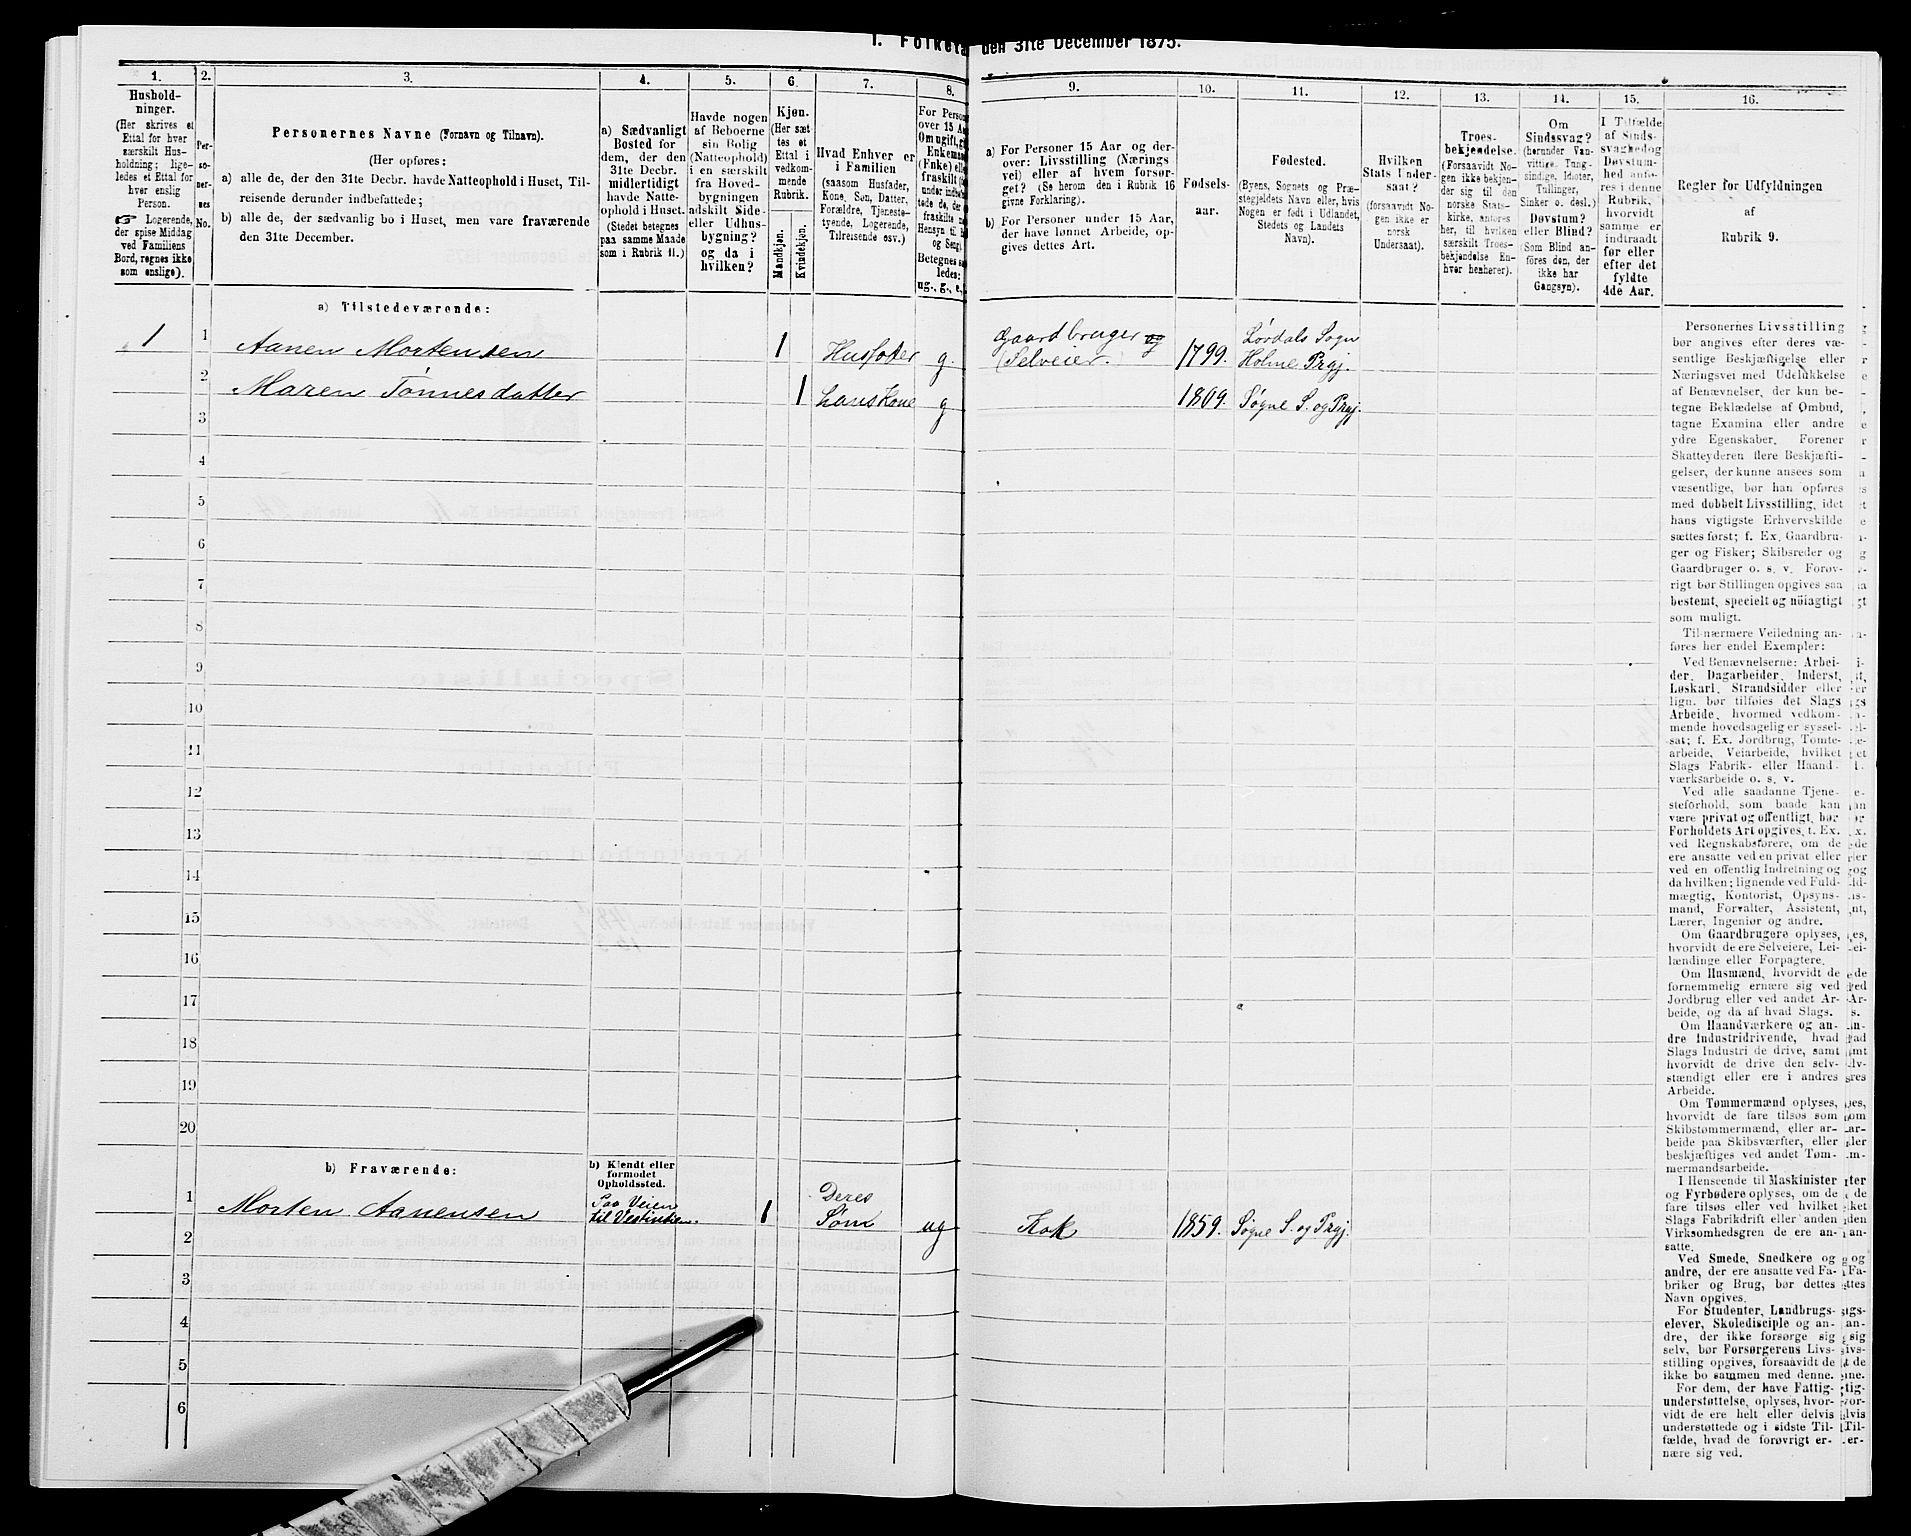 1. Folketa den 31te December 1875.
1.
Hushold-
ninger.
(Her skrives et
Ettal for hver
særskilt Hus-
holdning; lige-
ledes et Ettal for
hver enslig
Person.
☞ Logerende,
der spise Middag
ved Familiens
Bord, regnes ikke
som enslige).
2.
Per-
so-
ner-
nes
No.
3.
Personernes Navne (Fornavn og Tilnavn).
(Her opføres:
a) alle de, der den 31te Decbr. havde Natteophold i Huset, Til-
reisende derunder indbefattede;
b) alle de, der sædvanlig bo i Huset, men vare fraværende
den 31te December.
4.
a) Sædvanligt
Bosted for
dem, der den
31te Decbr.
midlertidigt
havde Natte-
ophold i Huset.
(Stedet betegnes
paa samme Maade
som i Rubrik 11.)
5.
Havde nogen
af Beboerne
sin Bolig
(Natteophold)
i en særskilt
fra Hoved-
bygningen
adskilt Side-
eller Udhus-
bygning?
og da i
hvilken?
6.
Kjøn.
(Her sæt
tes et
Ettal i
vedkom-
mende
Rubrik.
Mandkjøn.
Kvindekjøn.
7.
Hvad Enhver er
i Familien
(saasom Husfader,
Kone, Søn, Datter,
Forældre, Tjeneste-
tyende, Logerende,
Tilreisende osv.)
8.
For Perso
over 15 Aa
Om ugift, g
Enkema
(Enke) ell
fraskilt
Betegnes sa
ledes:
ug., g., e.,
9.
a) For Personer 15 Aar og der-
over: Livsstilling (Nærings
vei) eller af hvem forsør-
get? (Se herom den i Rubrik 16
givne Forklaring).
b) For Personer under 15 Aar,
der have lønnet Arbeide, op-
gives dettes Art.
10.
Fødsels-
aar.
11.
Fødested.
(Byens, Sognets og Præ-
stegjeldets Navn eller, hvis
Nogen er født i Udlandet,
Stedets og Landets
Navn).
12.
Hvilken
Stats Under-
saat?
(forsaavidt No-
gen ikke er
norsk
Undersaat).
13.
Troes-
bekjendelse.
(Forsaavidt No-
gen ikke bekjen-
der sig til den
norske Stats-
kirke, anføres
her, til hvilken
særskilt Troes-
bekjendelse En-
hver henhører).
14.
Om
Sindssvag?
(herunder Van-
vittige, Tung-
sindige, Idioter,
Tullinger,
Sinker o. desl.)
Døvstum?
eller Blind?
(Som Blind an-
føres den, der
ikke har
Gangsyn).
15.
I Tilfælde
af Sinds-
svaghed og
Døvstum-
hed anfø-
res i denne
Rubrik,
hvorvidt
samme er
indtraadt
før eller
efter det
fyldte
4de Aar.
16.
Regler for Udfyldningen
af
Rubrik 9.
a) Tilstedeværende:
1 1 Aanen Mortensen 1 Husfader g. Gaardbruger og (Selveier.) 1799. Holme Prgj.
2 Maren Tønnesdatter 1 hans Kone g 1809. Søgne S. og Prgj.
3
4
5
6
7
8
9
10
11
12
13
14
15
16
17
18
19
20
b) Fraværende:
b) Kjendt eller
formodet
Opholdssted.
1 Morten Aanensen Paa Veien til Vestindien. 1 Deres Søn ug Kok 1859. Søgne S. og Prgj.
2
3
4
5
6
Personernes Livsstilling
bør angives efter deres væ-
sentlige Beskjæftigelse eller
Næringsvei med Udelukkelse
af Benævnelser, der kun be-
tegne Beklædelse af Ombud,
tagne Examina eller andre
ydre Egenskaber. Forener
Skatteyderen flere Beskjæfti-
gelser, der kunne ansees som
væsentlige, bør han opføres
med dobbelt Livsstilling, idet
hans vigtigste Erhvervskilde
sættes først; f. Ex. Gaardbru-
ger og Fisker; Skibsreder og
Gaardbruger o. s. v. Forøv-
rigt bør Stillingen opgives saa
bestemt, specielt og nöiagtigt
som muligt.
Til nærmere Veiledning an-
føres her endel Exempler:
Ved Benævnelserne: Arbei-
der, Dagarbeider, Inderst,
Løskarl, Strandsidder eller
lign. bør tilføies det Slags
Arbeide, hvormed vedkom-
mende hovedsagelig er syssel-
sat; f. Ex. Jordbrug, Tomte-
arbeide, Veiarbeide, hvilket
Slags Fabrik- eller Haand-
værksarbeide o. s. v.
Ved alle saadanne Tjene-
steforhold, som baade kan
være privat og offentligt, bør
Forholdets Art opgives, f. Ex.
ved Regnskabsførere, om de
ere ansatte ved en privat eller
ved en offentlig Indretning og
da hvilken; lignende ved Fuld-
mægtig, Kontorist, Opsyns-
mand, Forvalter, Assistent,
Lærer, Ingeniør og andre.
Om Gaardbrugere oplyses,
hvorvidt de ere Selveiere, Lei-
lændinge eller Forpagtere.
Om Husmænd, hvorvidt de
fornemmelig ernære sig ved
Jordbrug eller ved andet Ar-
beide, og da af hvad Slags.
Om Haandværkere og an-
dre Industridrivende, hvad
Slags Industri de drive, samt
hvorvidt de drive den selv-
stændigt eller ere i andres
Arbeide.
Om Tømmermænd oplyses,
hvorvidt de fare tilsøs som
Skibstømmermænd, eller ar-
beide paa Skibsværfter, eller
beskjæftiges ved andet Tøm-
mermandsarbeide.
I Henseende til Maskinister
og Fyrbødere oplyses, om de
fare tilsøs eller ved hvilket
Slags Fabrikdrift eller anden
Virksomhedsgren de ere an-
satte.
Ved Smede, Snedkere og
andre, der ere ansatte ved Fa-
briker og Brug, bør dettes
Navn opgives.
For Studenter, Landbrugs-
elever, Skoledisciple og an-
dre, der ikke forsørge sig
selv, bør Forsørgerens Livs-
stilling opgives, forsaavidt de
ikke bo sammen med denne.
For dem, der have Fattig-
understøttelse, oplyses, hvor-
vidt de ere helt eller delvis
understøttede og i sidste Til-
fælde, hvad de forøvrigt er-
nære sig ved.